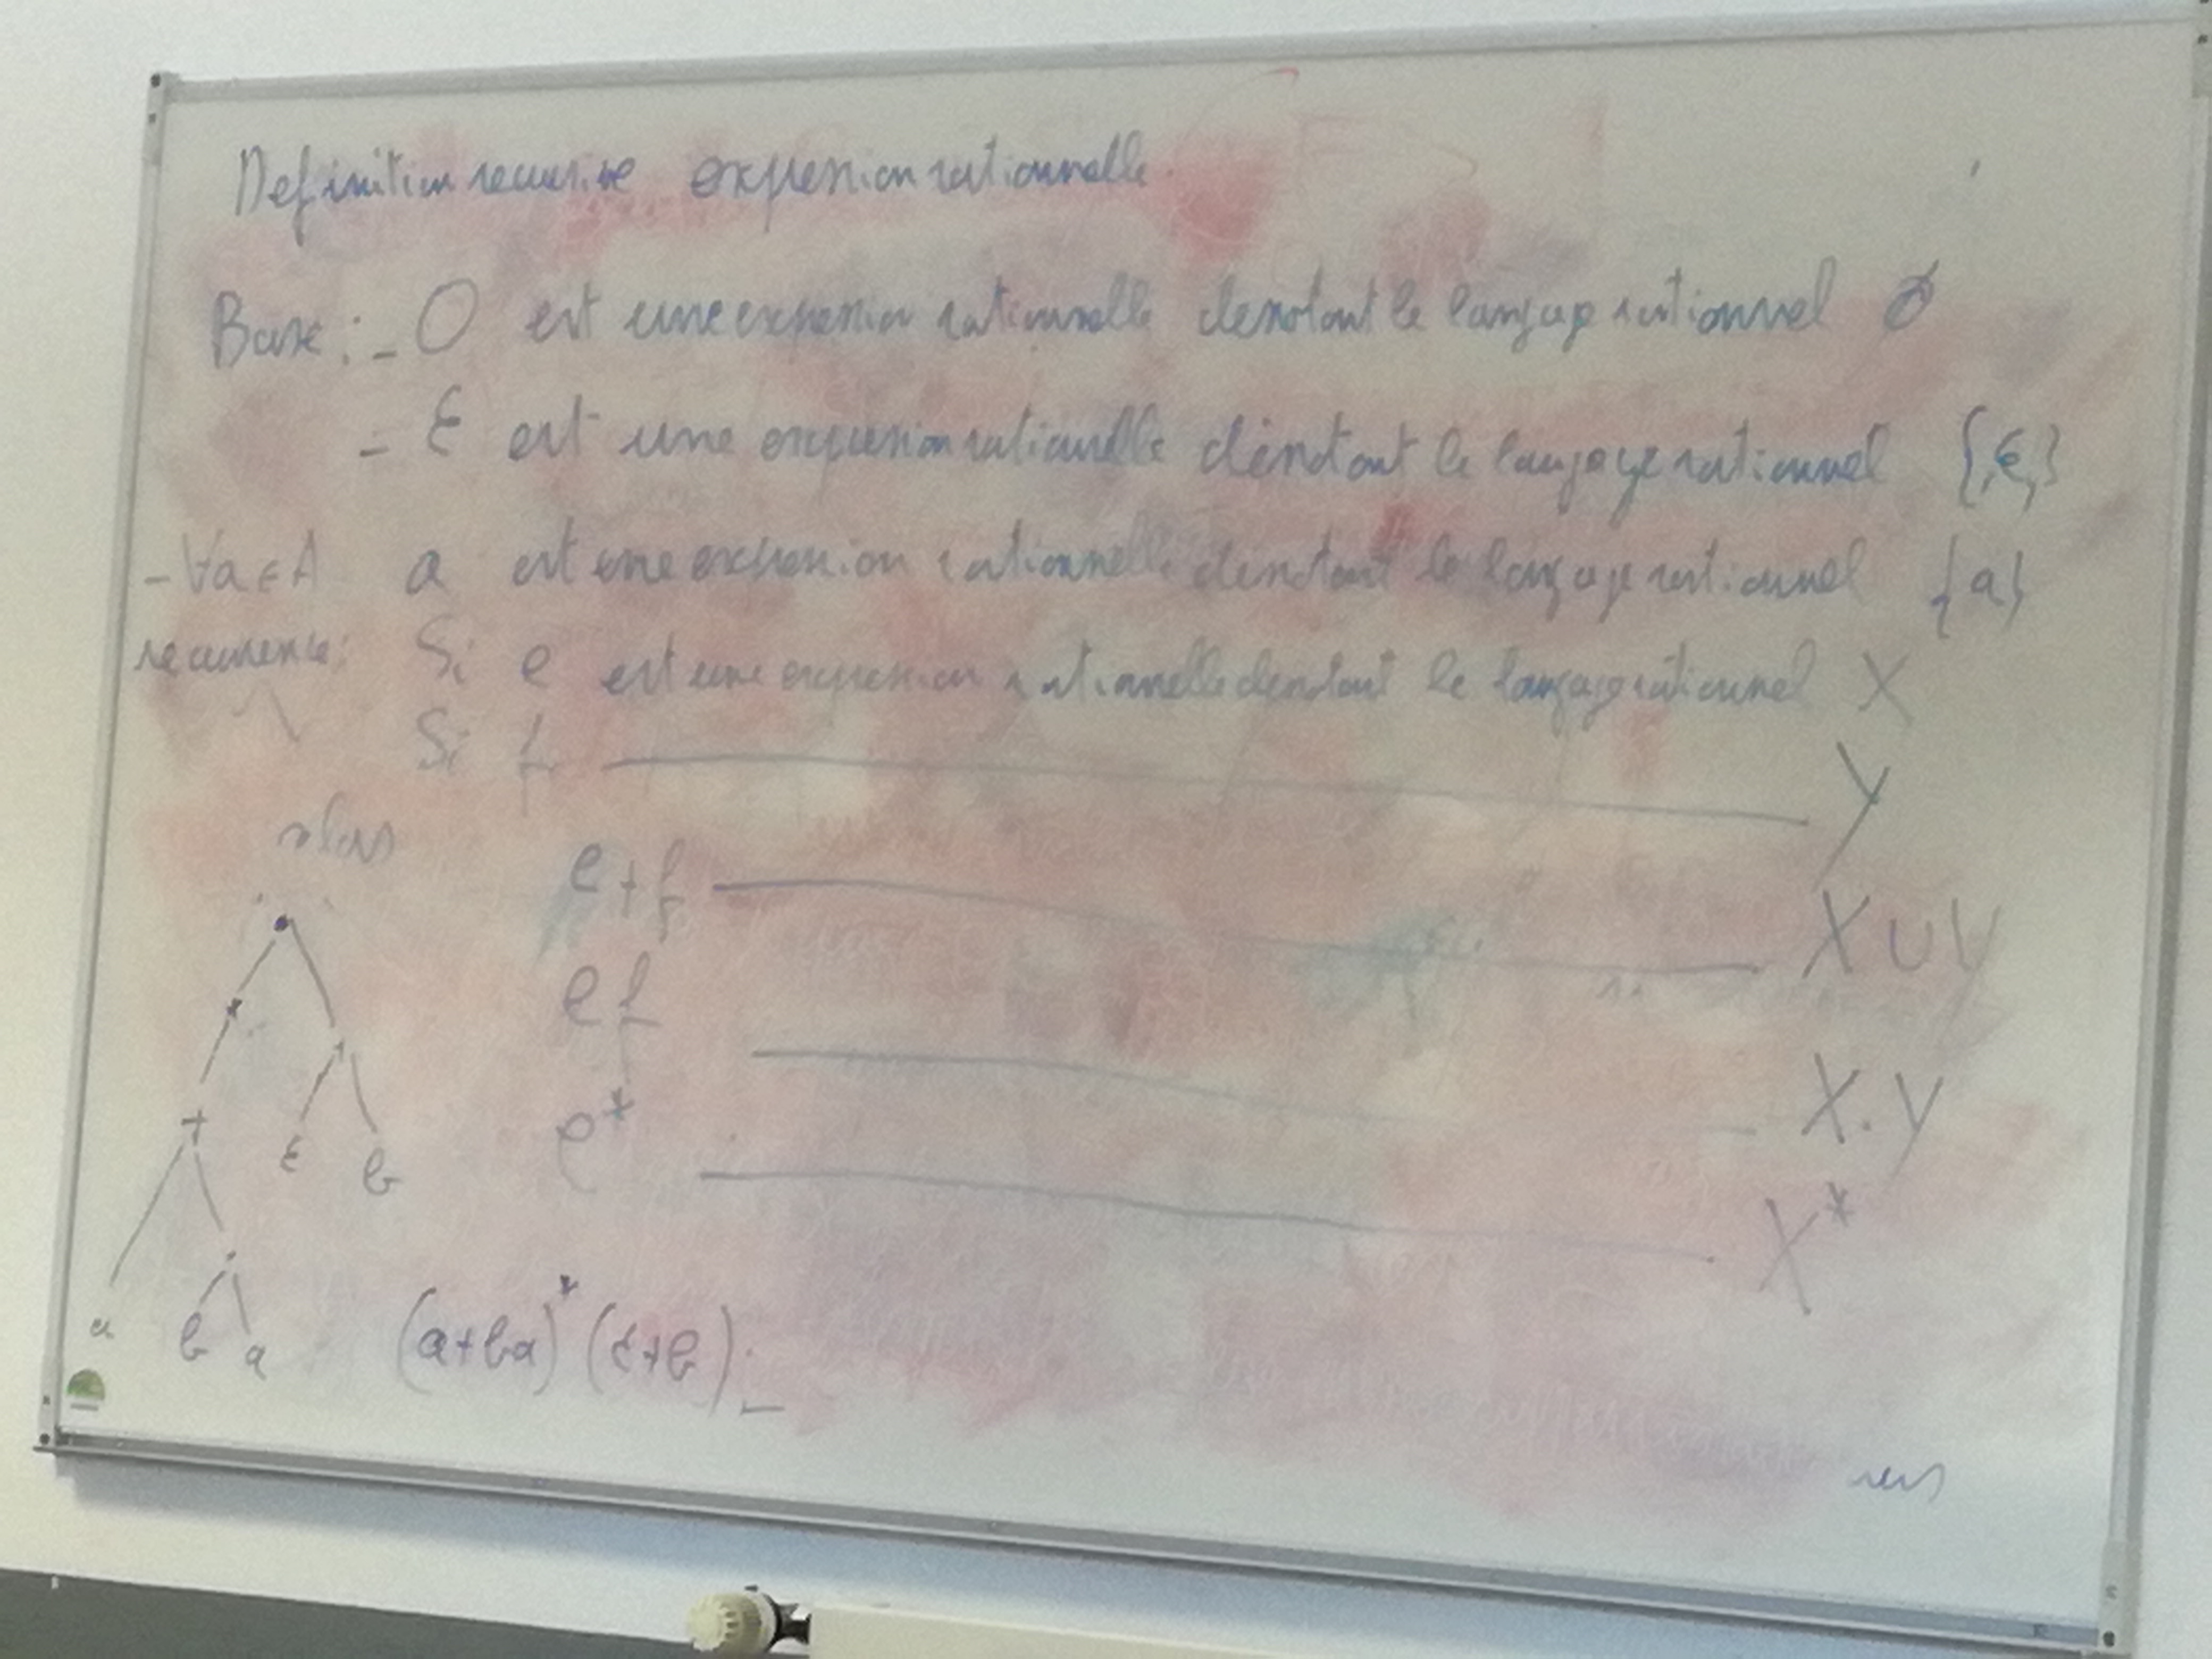 Definition recursive expression rationnelle.
Base : - O est une expression rationnelle denotant le langage rationnel Ø
- ε est une expression rationnelle dénotant le langage rationnel {ε}
- ∀a ∈ A a est une expression rationnelle dénotant le langage rationnel {a}
recurrence: Si e est une expression rationnelle denotant le langage rationnel X
Si f Y
alors
e+f X ∪ Y
ef X.Y
e* X*
.
*
+
ε b
a
b a
(a+ba)* (ε+b)